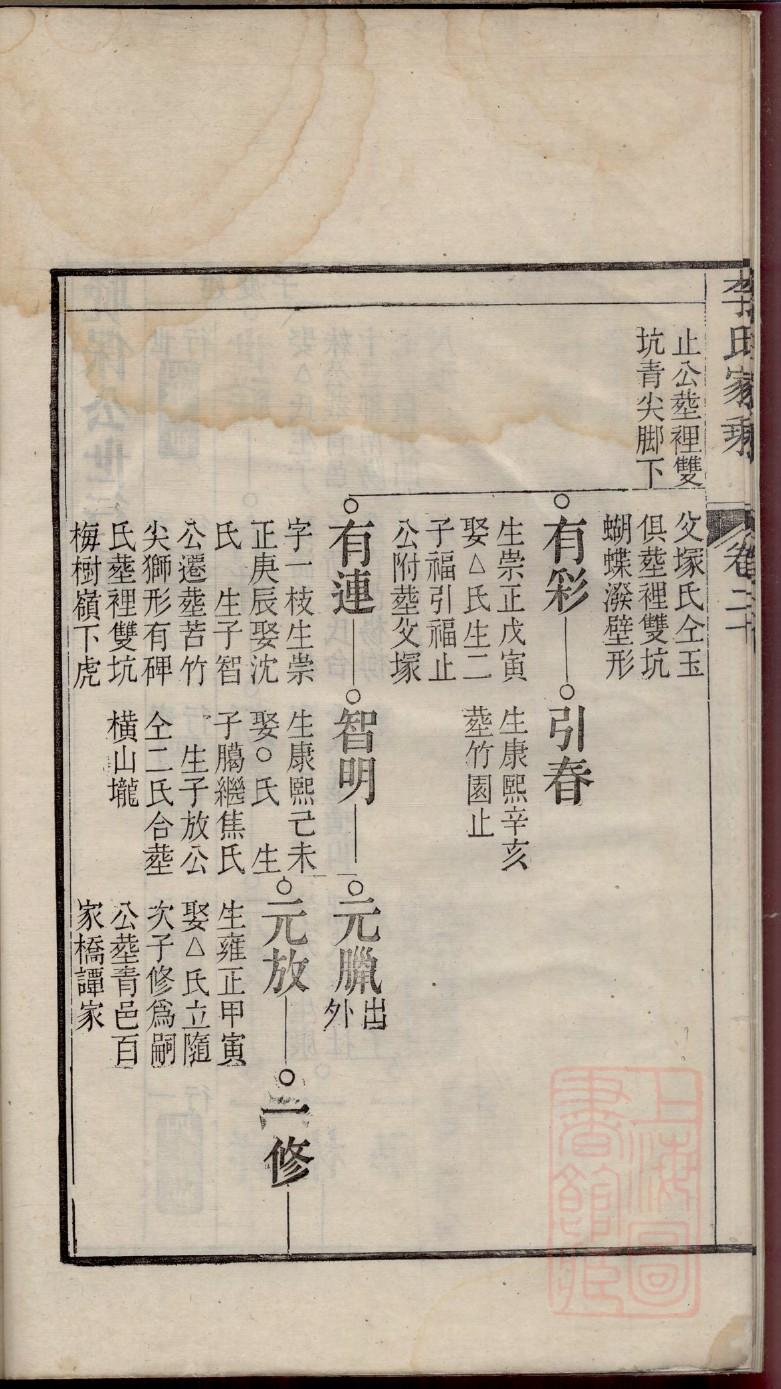 李氏家乘
卷二十
止公塟裡雙
坑青尖脚下
父塚氏仝玉
俱塟裡雙坑
蝴蝶潑壁形
有彩
生崇正戊寅
娶△氏生二
子福引福止
公附塟父塚
引春
生康熙辛亥
塟竹園止
有連
字一枝生崇
正庚辰娶沈
氏 生子智
公遷塟苦竹
尖獅形有碑
氏塟裡雙坑
梅樹嶺下虎
智明
生康熙己未
娶○氏 生
子臈繼焦氏
生子放公
仝二氏合塟
橫山壠
元臘
出
外
元放
生雍正甲寅
娶△氏立隨
次子修爲嗣
公塟青邑百
家橋譚家
一修
上海圖
書館藏